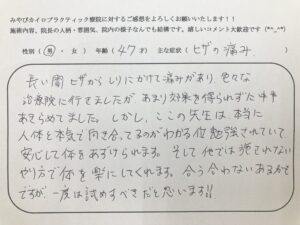 みやびカイロプラクティック療院に対するご感想をよろしくお願いいたします!!
施術内容、院長の人柄・雰囲気、院内の様子なんでも結構です。嬉しいコメント大歓迎です(*^_^*)
性別(男・女) 年齢(47才) 主な症状(ヒザの痛み)
長い間ヒザからしりにかけて痛みがあり、色々な
治療院に行きましたが あまり効果を得られずに半
あきらめてました。しかし、ここの先生は本当に
人体と本気で向き合ってるのがわかる位勉強されていて
安心して体をあずけられます。そして他では施されない
やり方で体を楽にしてくれます。合う合わないあるかと
ですが、一度は試めすべきだと思います!!